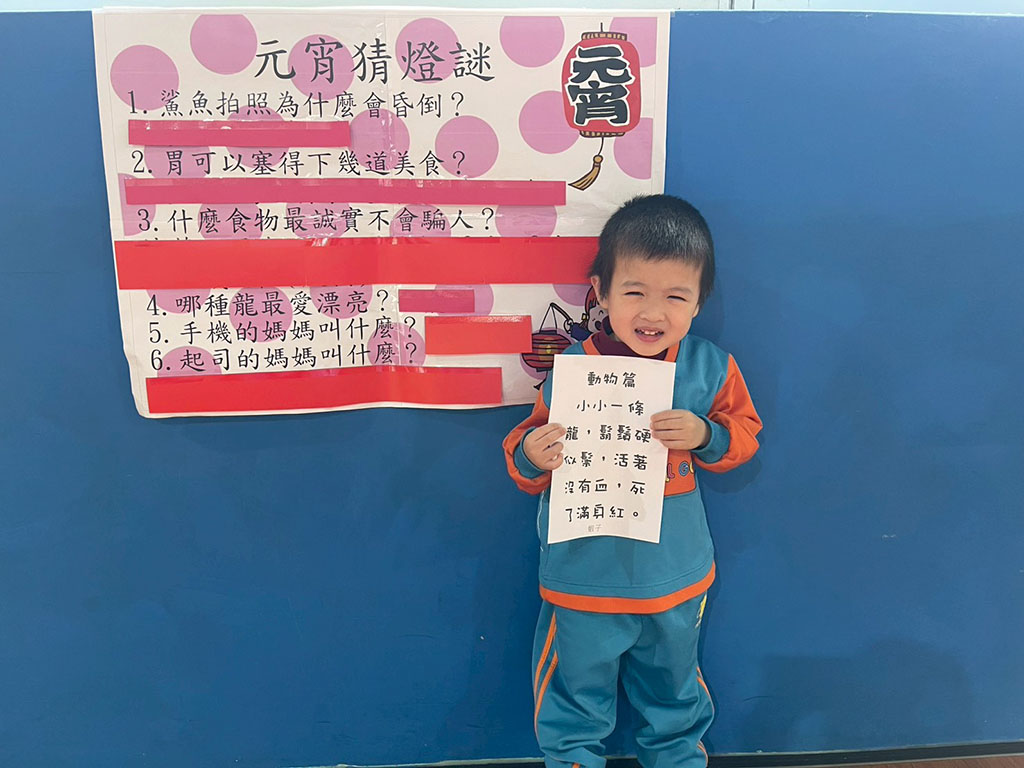 元宵猜燈謎
元宵
1. 鯊魚拍照為什麼會昏倒？
2. 胃可以塞得下幾道美食？
3. 什麼食物最誠實不會騙人？
4. 哪種龍最愛漂亮？
5. 手機的媽媽叫什麼？
6. 起司的媽媽叫什麼？
動物篇
小小一條
龍，鬍鬚硬
似鬃，活著
沒有血，死
了滿身紅。